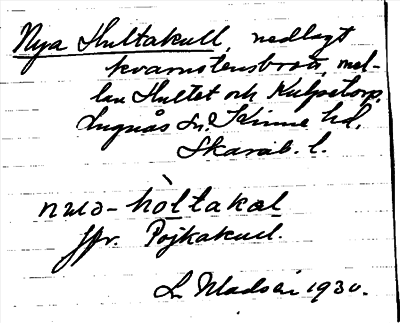 Nya Hultakull, nedlagt
kvarnstensbrott, mel-
lan Hultet och Kulpetorp,
Lugnås sn. Kinne hd.
Skarab. l.
nuə-hòltakəl
jfr. Pojkakull.
L. Madsén 1930.